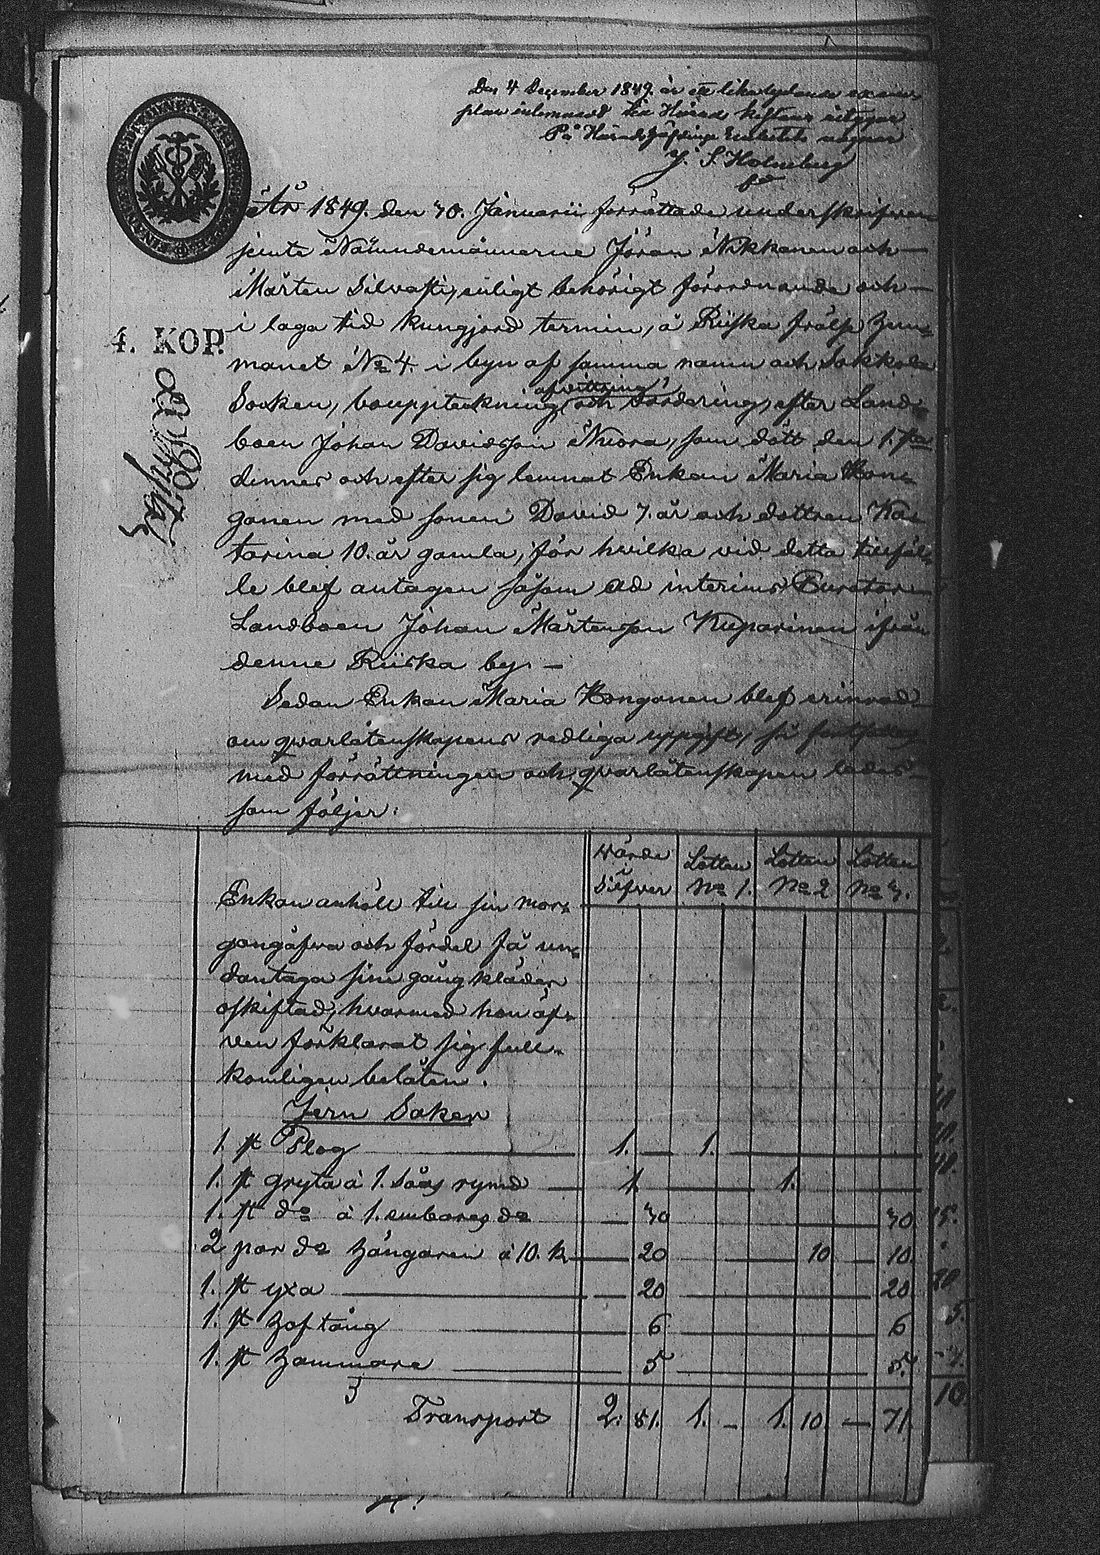 Den 4 December 1849 är ett likalydande exem
plar inlemnadt till Härads
På Häradshöfdinge Embetets vägnar
J. S. Holmberg
År 1849 den 30. Januarii förrättade underskrifven
jemte Nämndemännerne Jöran Nikkanen och
Mårten Silvasti, enligt behörigt förordnande och
i laga tid kungjord termin, å Riiska frälse hem-
manet No 4. i byn af samma namn och Sakkola
Socken, bouppteckning, afvittring, och värdering, efter Land-
boen Johan Davidsson Nuora, som dött den 1.sta
dinnes och efter sig lemnat Enkan Maria Kon-
gonen med sonen David 7. år och dottren Ka-
tarina 10. år gamla, för hvilka vid detta tillfäl-
le blef antagen såsom ad interims Curator
Landboen Johan Mårtensson Kuparinen ifrån
denne Riiska by. —
Sedan Enkan Maria Kongonen blef erinrad
om qvarlåtenskapens redliga uppgift, så
med förrättningen och qvarlåtenskapen
som följer:
4. KOP.
Värde Silfver
Lotten No 1.
Lotten No 2
Lotten No 3.
Enkan anhöll till sin mor-
gongåfva och fördel få un-
dantaga sine gångkläder
oskiftad, hvarmed hon äf-
ven förklarat sig full-
komligen belåten.
Jern Saker
1. st Plog 1. — 1.
1. st gryta à 1. Såås rymd 1. 1.
1. st do à 1. embares do — 30 30
2 par do hängaren à 10. k — 20 10 — 10.
1. st yxa — 20 20
1. st hoftång 6 6
1. st hammare 5 5.
Transport 2. 81. 1. — 1. 10 — 71.